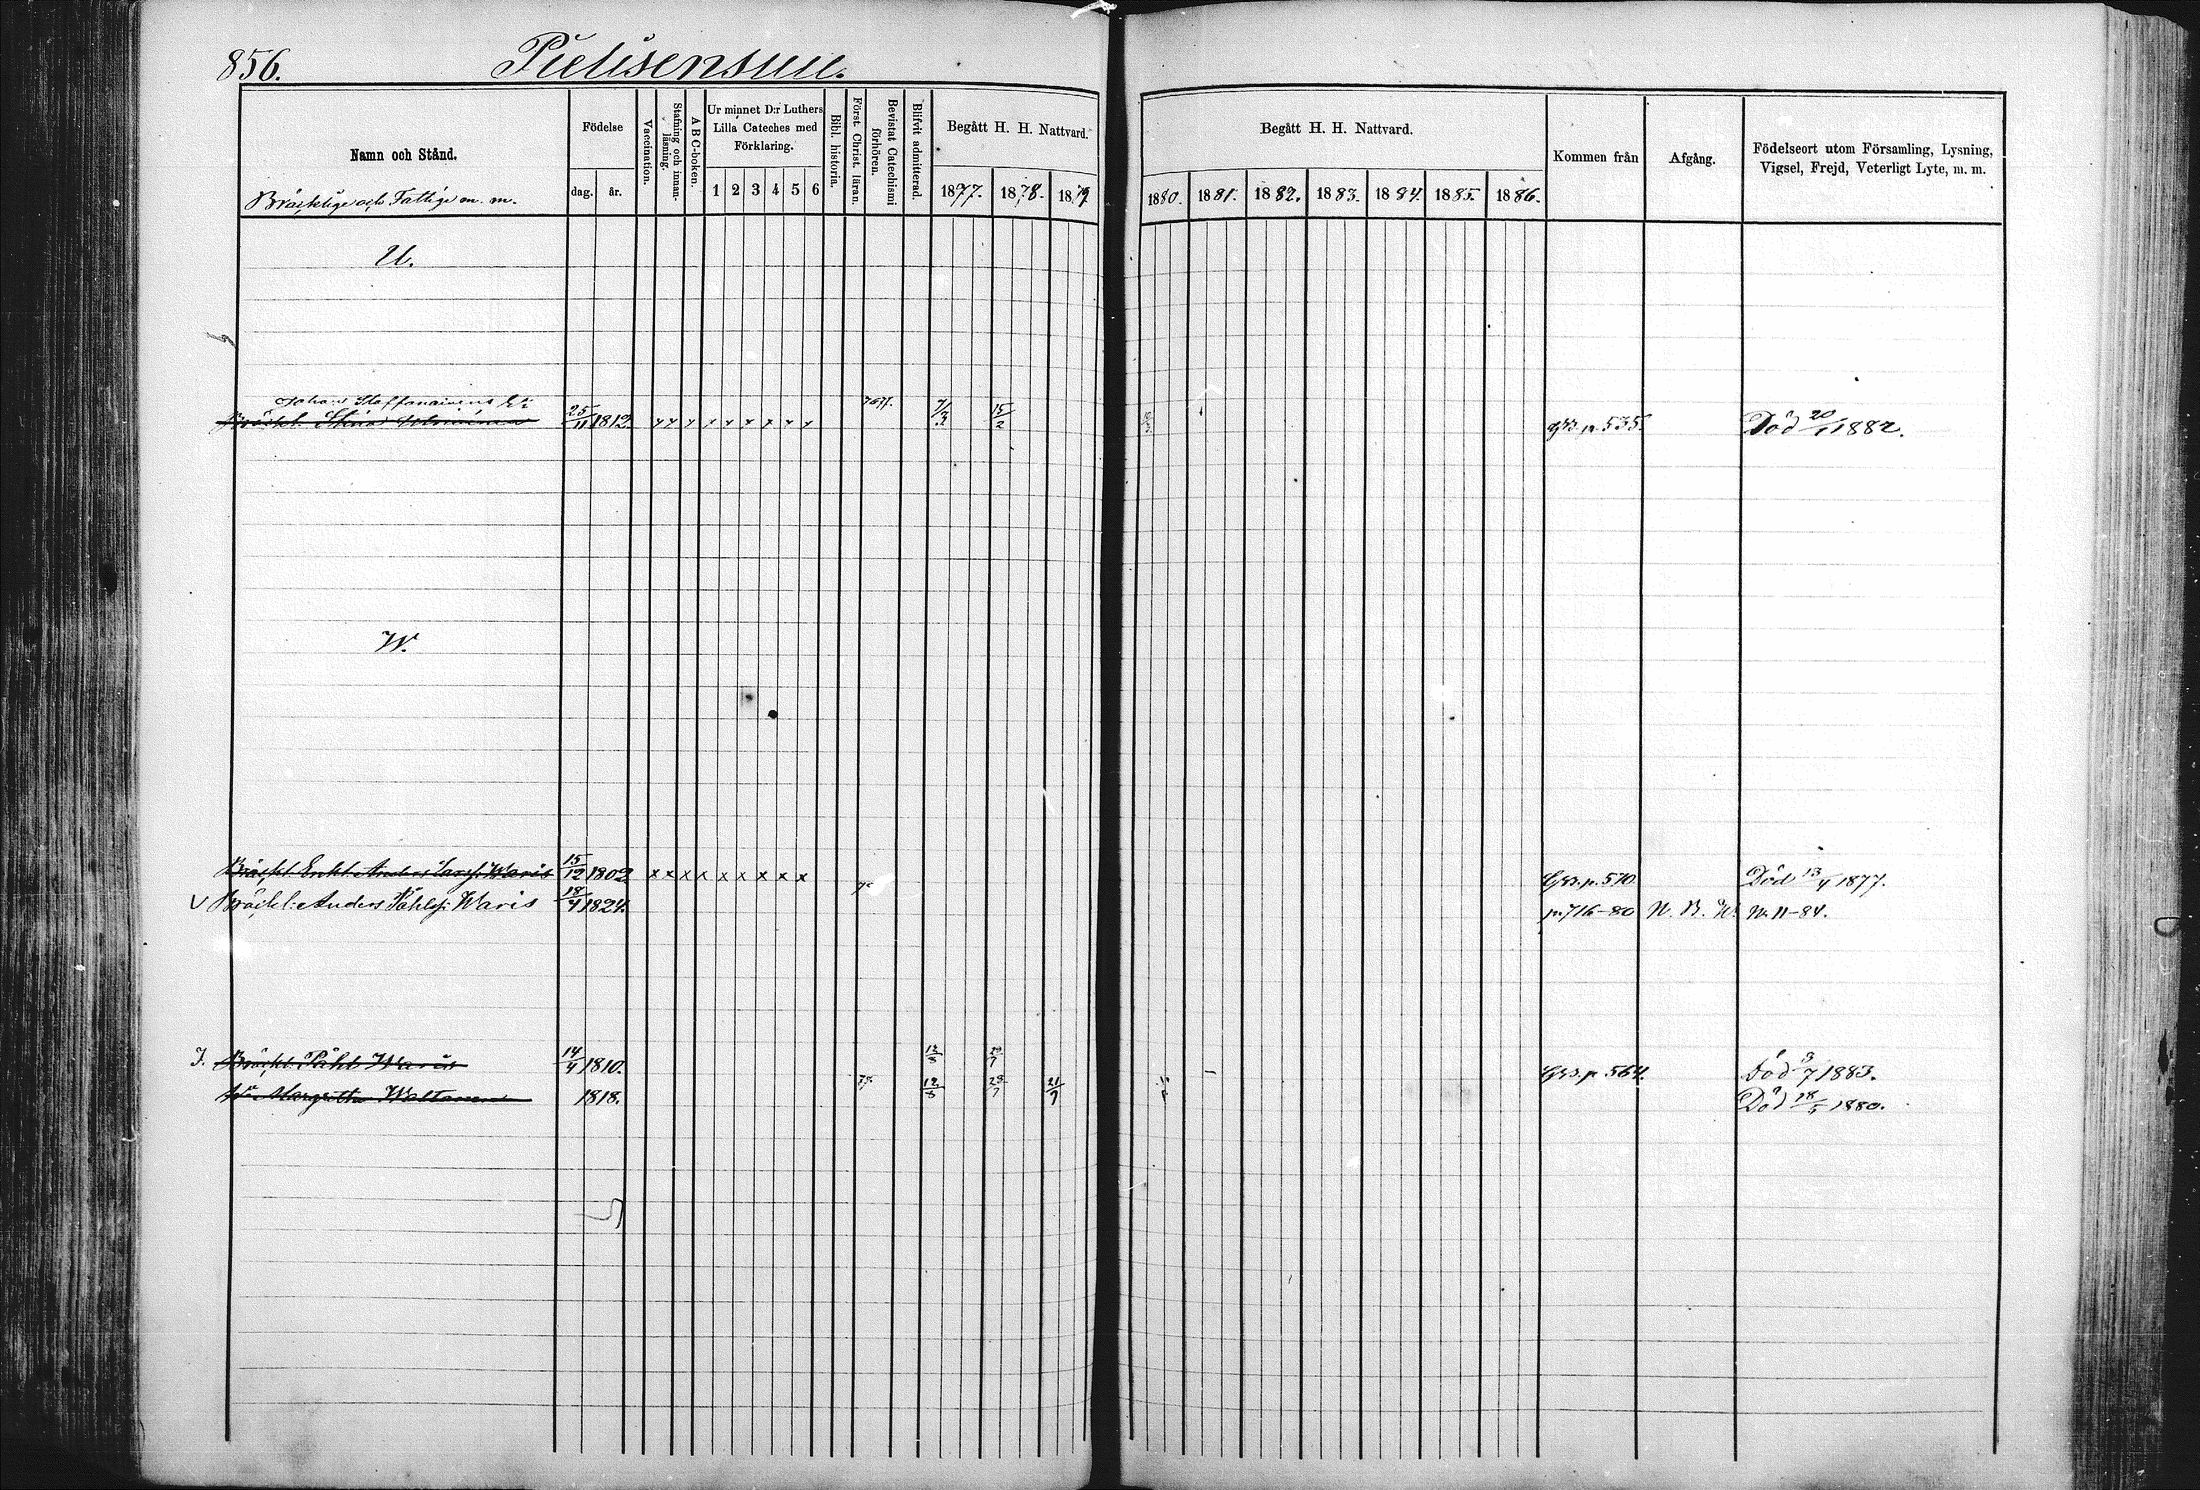 856.
Pielisensuu.
Namn och Stånd.
Bräcklige och Fattige m. m.
Födelse
dag. år.
Vaccination.
Stafning och innan-läsning.
A B C-boken.
Ur minnet D:r Luthers
Lilla Cateches med
Förklaring.
1 2 3 4 5 6
Bibl. historia.
Först. Christ. läran.
Bevistat Catechismi förhören.
Blifvit admitterad.
Begått H. H. Nattvard.
1877. 1878. 1879
Begått H. H. Nattvard.
1880. 1881. 1882. 1883. 1884. 1885. 1886.
Kommen från
Afgång.
Födelseort utom Församling, Lysning,
Vigsel, Frejd, Veterligt Lyte, m. m.
U.
Johan Staffanainens
Bräckl. Stina 25/11 1812. x x x x x x x x x 7/3 15/2 p. 535. Död 20/1 1882.
W.
Bräckl. Enkl. Anders Larsf. Waris 15/12 1802 x x x x x x x x x p. 570 Död 13/4 1877.
V Bräckl: Anders Påhlsf: Waris 18/4 1824. p. 716-80 N. B. N. 11-84.
J. Bräckl. Påhl Waris 14/4 1810. 12/8 p. 564. Död 3/7 1883.
Margretha Waltonen 1818. 12/8 Död 18/5 1880.